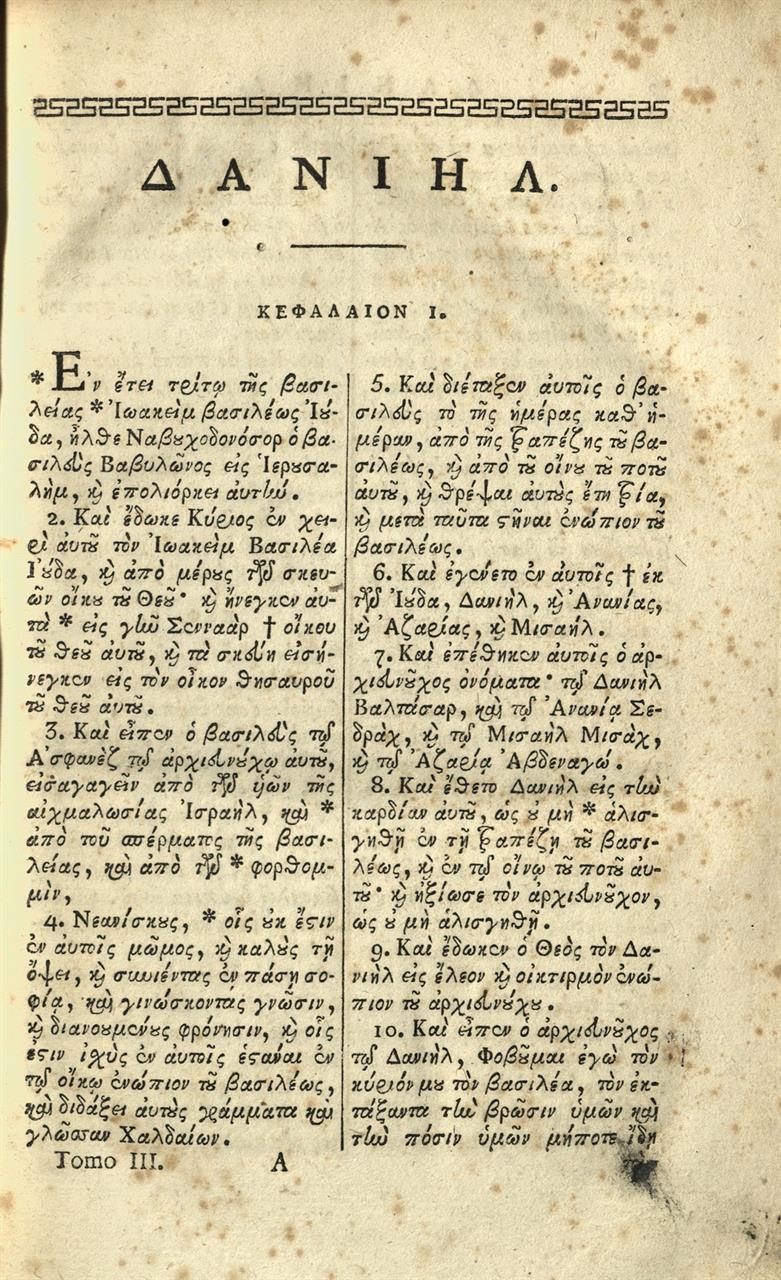 ΔΑΝΙΗΛ.
ΚΕΦΑΛΑΙΟΝ Ι.
* Ε᾿ν ἔτει τρίτῳ τῆς βασι-
λείας * Ἰωακεὶμ βασιλέως Ἰού-
δα, ἦλθε Ναβουχοδονόσορ ὁ βα-
σιλεὺς Βαβυλῶνος εἰς Ἱερουσα-
λὴμ, καὶ ἐπολιόρκει ἀυτήν.
2. Καὶ ἔδωκε Κύριος ἐν χει-
ρὶ ἀυτοῦ τὸν Ἰωακεὶμ Βασιλέα
Ι᾿ούδα, καὶ ἀπὸ μέρους τῶν σκευ-
ῶν οἴκου τοῦ Θεοῦ· καὶ ἤνεγκεν ἀυ-
τὰ * εἰς γῆν Σενναὰρ † οἴκου
τοῦ θεοῦ ἀυτοῦ, καὶ τὰ σκεύη εἰσή-
νεγκεν εἰς τὸν οἶκον θησαυροῦ
τοῦ θεοῦ ἀυτοῦ.
3. Καὶ εἶπεν ὁ βασιλεὺς τῷ
Α᾿σφανὲζ τῷ ἀρχιευνούχῳ ἀυτοῦ,
εἰσαγαγεῖν ἀπὸ τῶν ὑιῶν τῆς
αἰχμαλωσίας Ἰσραὴλ, καὶ *
ἀπὸ τοῦ σπέρματος τῆς βασι-
λείας, καὶ ἀπὸ τῶν * φορθομ-
μὶν,
4. Νεανίσκους, * οἷς οὐκ ἔστιν
ἐν ἀυτοῖς μῶμος, καὶ καλοὺς τῇ
ὄψει, καὶ συνιέντας ἐν πάσῃ σο-
φίᾳ, καὶ γινώσκοντας γνῶσιν,
καὶ διανουμένους φρόνησιν, καὶ οἷς
ἐστιν ἰχὺς ἐν ἀυτοῖς ἑστάναι ἐν
τῷ οἴκῳ ἐνώπιον τοῦ βασιλέως,
καὶ διδάξει ἀυτοὺς γράμματα καὶ
γλῶσσαν Χαλδαίων.
Tomo III. A
5. Καὶ διέταξεν ἀυτοῖς ὁ βα-
σιλεὺς τὸ τῆς ἡμέρας καθ᾿ ἡ-
μέραν, ἀπὸ τῆς τραπέζης τοῦ βα-
σιλέως, καὶ ἀπὸ τοῦ οἴνου τοῦ ποτοῦ
ἀυτοῦ, καὶ θρέψαι ἀυτοὺς ἔτη τρία,
καὶ μετὰ ταῦτα στῆναι ἐνώπιον τοῦ
βασιλέως.
6. Καὶ ἐγένετο ἐν ἀυτοῖς † ἐκ
τῶν Ἰούδα, Δανιὴλ, καὶ Ἀνανίας,
καὶ Ἀζαρίας, καὶ Μισαήλ.
7. Καὶ ἐπέθηκεν ἀυτοῖς ὁ ἀρ-
χιευνοῦχος ὀνόματα· τῷ Δανιὴλ
Βαλτάσαρ, καὶ τῷ Ἀνανίᾳ Σε-
δρὰχ, καὶ τῷ Μισαὴλ Μισὰχ,
καὶ τῷ Ἀζαρίᾳ Ἀβδεναγώ.
8. Καὶ ἔθετο Δανιὴλ εἰς τὴν
καρδίαν ἀυτοῦ, ὡς οὐ μὴ * ἁλισ-
γηθῇ ἐν τῇ τραπέζῃ τοῦ βασι-
λέως, καὶ ἐν τῷ οἴνῳ τοῦ ποτοῦ ἀυ-
τοῦ· καὶ ἠξίωσε τὸν ἀρχιευνοῦχον,
ὡς οὐ μὴ ἁλισγηθῇ.
9. Καὶ ἔδωκεν ὁ Θεὸς τὸν Δα-
νιὴλ εἰς ἔλεον καὶ οἰκτιρμὸν ἐνώ-
πιον τοῦ ἀρχιευνούχου.
10. Καὶ εἶπεν ὁ ἀρχιευνοῦχος
τῷ Δανιὴλ, Φοβοῦμαι ἐγὼ τὸν
κύριόν μου τὸν βασιλέα, τὸν ἐκ-
τάξαντα τὴν βρῶσιν ὑμῶν καὶ
τὴν πόσιν ὑμῶν μήποτε ἴδῃ